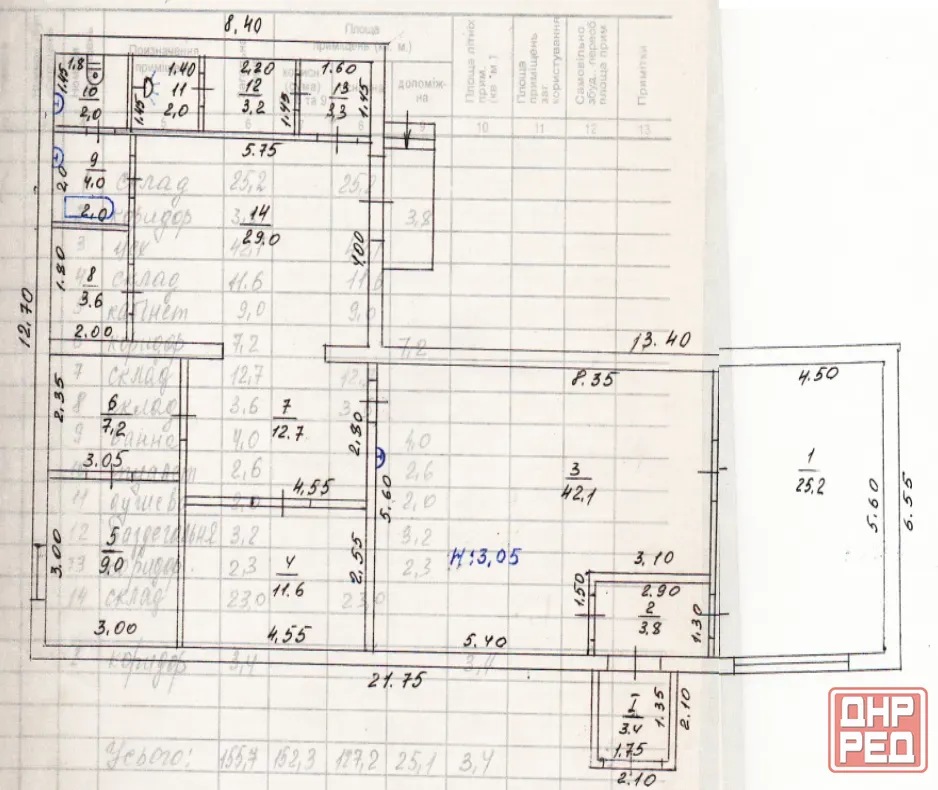 8.40
Площа
приміщень (кв. м.)
Призначення
приміщ
корисн
допоміж-
на
Площа літніх
прим.
(кв. м.)
Площа
приміщень
заг.
користування
Самовільно
збуд. переоб
площа прим
Примітки
5 6 8 9 10 11 12 13
1.8
1.45
10
2,0
1.40
11
2,0
1.45
2.20
12
3.2
1.45
1.60
13
3,3
1.45
5.75
9
4.0
2.0
2.0
14
29.0
4.00
8
3.6
1.80
2.00
12.70
склад 25,2 25,2
коридор 3,8
3 42,1
4 склад 11.6 11.6
кабінет 9,0 9,0
коридор 7,2 7,2
7 склад 12,7
8 склад 3,6
9 ванна 4,0 4,0
туалет 2,6 2,6
11 2,0 2,0
12 роздягальня 3,2 3,2
коридор 2,3 2,3
14 склад 23,0 23,0
коридор 3,4 3,4
Усього: 155,7 152,3 127,2 25,1 3,4
13.40
2.35
6
7,2
3.05
7
12.7
2.80
4,55
8.35
3
42.1
5.60
4.50
1
25,2
5.60
6.55
3.00
5
9.0
3.00
4
11.6
2.55
4.55
H:3,05
3.10
1.50
2.90
2
3.8
1.30
5.40
21.75
I
3.4
1.35
1.75
2.10
2.10
ДНР
РЕД